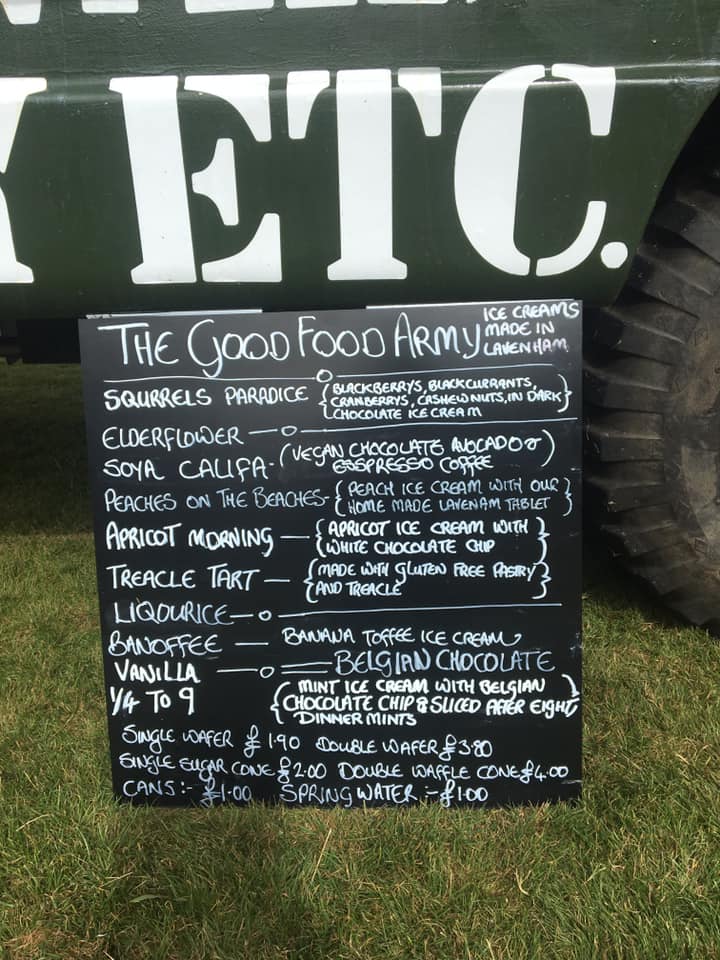 ETC.
THE GOOD FOOD ARMY
ICE CREAMS
MADE IN
LAVENHAM
SQURRELS PARADICE {BLACKBERRYS, BLACKCURRANTS,
CRANBERRYS, CASHEW NUTS, IN DARK}
CHOCOLATE ICE CREAM
ELDERFLOWER
SOYA CALIFA- (VEGAN CHOCOLATE AVOCADO &
ESSPRESSO COFFEE)
PEACHES ON THE BEACHES- {PEACH ICE CREAM WITH OUR
HOME MADE LAVENAM TABLET}
APRICOT MORNING — {APRICOT ICE CREAM WITH
WHITE CHOCOLATE CHIP}
TREACLE TART — {MADE WITH GLUTEN FREE PASTRY
AND TREACLE}
LIQOURICE
BANOFFEE — BANANA TOFFEE ICE CREAM
VANILLA — BELGIAN CHOCOLATE
1/4 TO 9 {MINT ICE CREAM WITH BELGIAN
CHOCOLATE CHIP & SLICED AFTER EIGHT
DINNER MINTS}
SINGLE WAFER £1.90 DOUBLE WAFER £3.80
SINGLE SUGAR CONE £2.00 DOUBLE WAFFLE CONE £4.00
CANS:- £1.00 SPRING WATER :- £1.00